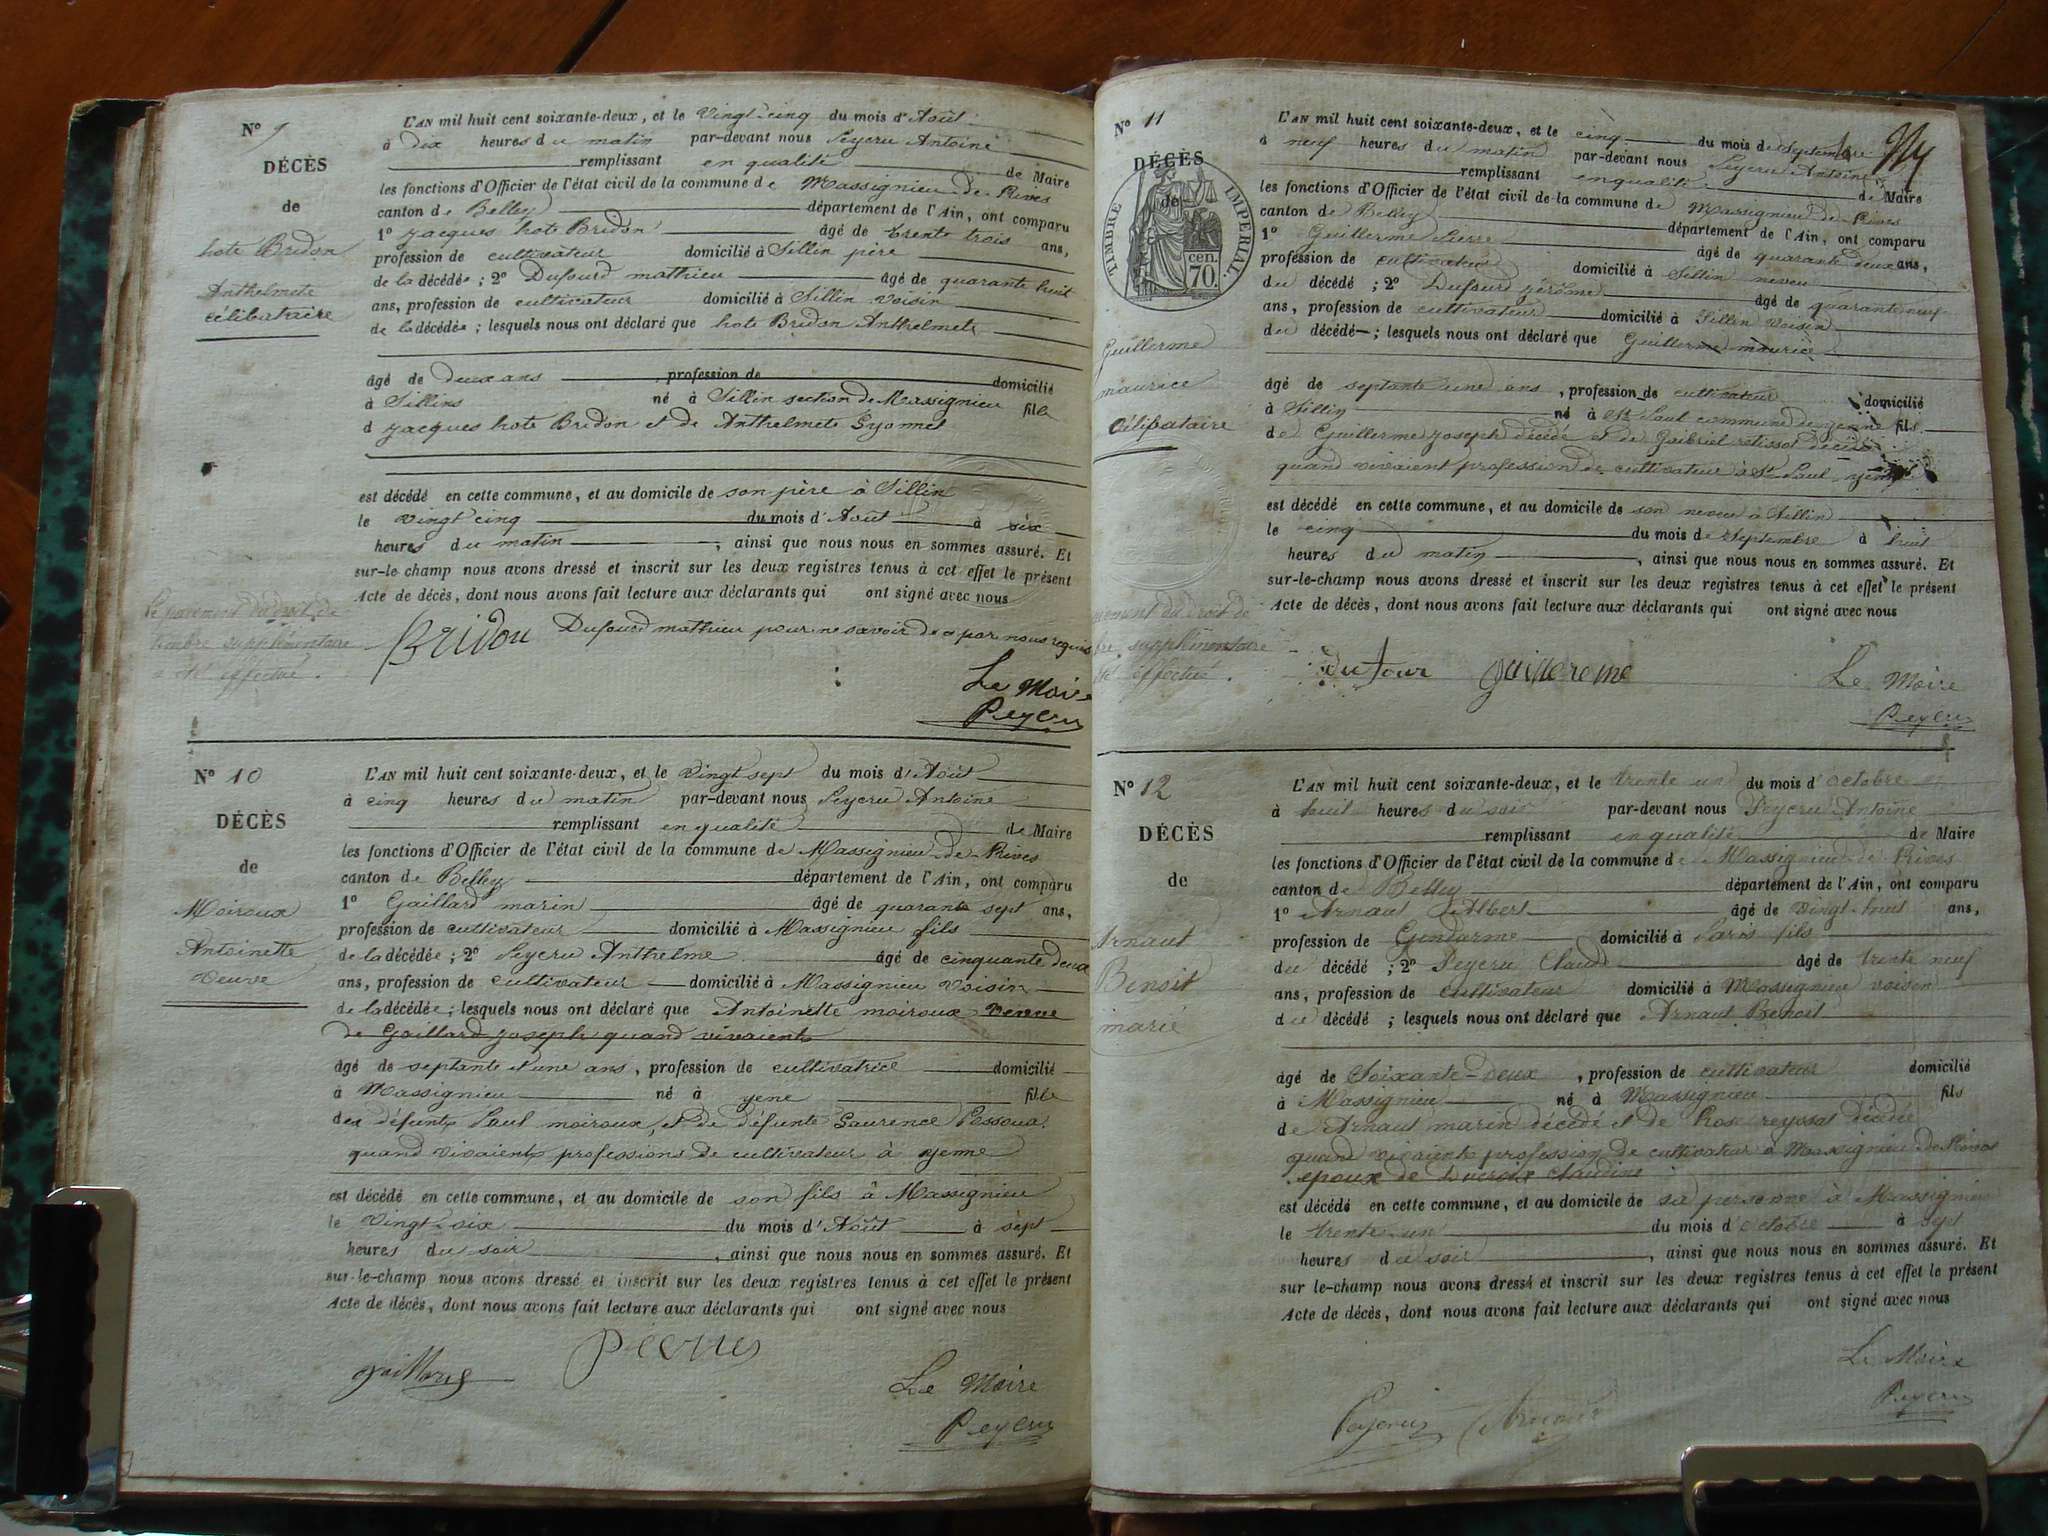 N° 9
DÉCÈS
de
hote Bridon
Anthelmete
célibataire
L'AN mil huit cent soixante-deux, et le vingt-cinq du mois d'Août
à dix heures du matin par-devant nous Peycru Antoine
remplissant en qualité de Maire
les fonctions d'Officier de l'état civil de la commune de Massignieu de Rives
canton de Belley département de l'Ain, ont comparu
1° Jacques hote Bridon âgé de trente trois ans,
profession de cultivateur domicilié à Sillin père
de la décédée ; 2° Dufourd mathieu âgé de quarante huit
ans, profession de cultivateur domicilié à Sillin voisin
de la décédée ; lesquels nous ont déclaré que hote Bridon Anthelmete
âgé de deux ans profession de domicilié
à Sillins né à Sillin section de Massignieu fille
d Jacques hote Bridon et de Anthelmete Gyonnet
est décédé en cette commune, et au domicile de son père à Sillin
le vingt cinq du mois d'Août à six
heures du matin, ainsi que nous nous en sommes assuré. Et
sur-le-champ nous avons dressé et inscrit sur les deux registres tenus à cet effet le présent
Acte de décès, dont nous avons fait lecture aux déclarants qui ont signé avec nous
Le payement du droit de
timbre supplémentaire
a été effectué.
Bridon Dufourd mathieu pour ne savoir de par nous requis
Le Maire
Peycru
N° 10
DÉCÈS
de
Moiroux
Antoinette
veuve
L'AN mil huit cent soixante-deux, et le vingt sept du mois d'Août
à cinq heures du matin par-devant nous Peycru Antoine
remplissant en qualité de Maire
les fonctions d'Officier de l'état civil de la commune de Massignieu de Rives
canton de Belley département de l'Ain, ont comparu
1° Gaillard marin âgé de quarante sept ans,
profession de cultivateur domicilié à Massignieu fils
de la décédée ; 2° Peycru Anthelme âgé de cinquante deux
ans, profession de cultivateur domicilié à Massignieu voisin
de la décédée ; lesquels nous ont déclaré que Antoinette moiroux veuve
de Gaillard Joseph quand vivaient
âgé de septante et une ans, profession de cultivatrice domicilié
à Massignieu né à yene fille
des défunt Paul moiroux, et de défunte Laurence Possoua
quand vivaient professions de cultivateur à yenne
est décédé en cette commune, et au domicile de son fils à Massignieu
le vingt-six du mois d'Août à sept
heures du soir, ainsi que nous nous en sommes assuré. Et
sur-le-champ nous avons dressé et inscrit sur les deux registres tenus à cet effet le présent
Acte de décès, dont nous avons fait lecture aux déclarants qui ont signé avec nous
gaillard
Le Maire
Peycru
N° 11
DÉCÈS
de
TIMBRE IMPERIAL
70 cen.
Guillerme
maurice
célibataire
L'AN mil huit cent soixante-deux, et le cinq du mois de septembre
à neuf heures du matin par-devant nous Peycru Antoine
remplissant en qualité de Maire
les fonctions d'Officier de l'état civil de la commune de Massignieu de Rives
canton de Belley département de l'Ain, ont comparu
1° Guillerme Pierre âgé de quarante deux ans,
profession de cultivateur domicilié à Sillin neveu
du décédé ; 2° Dufourd jérôme âgé de quarante neuf
ans, profession de cultivateur domicilié à Sillin voisin
du décédé ; lesquels nous ont déclaré que Guillerme maurice
âgé de septante une ans, profession de cultivateur domicilié
à Sillin né à St Paul commune de yenne fils
de Guillerme joseph décédé et de Gabriel rétissot décédé
quand vivaient profession de cultivateur à St Paul yenne
est décédé en cette commune, et au domicile de son neveu à Sillin
le cinq du mois de septembre à huit
heures du matin, ainsi que nous nous en sommes assuré. Et
sur-le-champ nous avons dressé et inscrit sur les deux registres tenus à cet effet le présent
Acte de décès, dont nous avons fait lecture aux déclarants qui ont signé avec nous
payement du droit de
supplémentaire
effectué.
dufour guillereme
Le Maire
Peycru
N° 12
DÉCÈS
de
Arnaut
Benoit
marié
L'AN mil huit cent soixante-deux, et le trente un du mois d'octobre
à huit heures du soir par-devant nous Peycru Antoine
remplissant en qualité de Maire
les fonctions d'Officier de l'état civil de la commune de Massignieu de Rives
canton de Belley département de l'Ain, ont comparu
1° Arnaut Albert âgé de vingt-huit ans,
profession de Gendarme domicilié à Paris fils
du décédé ; 2° Peycru Claude âgé de trente neuf
ans, profession de cultivateur domicilié à Massignieu voisin
du décédé ; lesquels nous ont déclaré que Arnaut Benoit
âgé de Soixante-deux, profession de cultivateur domicilié
à Massignieu né à Massignieu fils
de Arnaut marin décédé et de Rose reyssat décédée
quand vivaient profession de cultivateur à Massignieu de Rives
epoux de Ducroix Claudine
est décédé en cette commune, et au domicile de sa personne à Massignieu
le trente-un du mois d'octobre à sept
heures du soir, ainsi que nous nous en sommes assuré. Et
sur le-champ nous avons dressé et inscrit sur les deux registres tenus à cet effet le présent
Acte de décès, dont nous avons fait lecture aux déclarants qui ont signé avec nous
Le Maire
Peycru